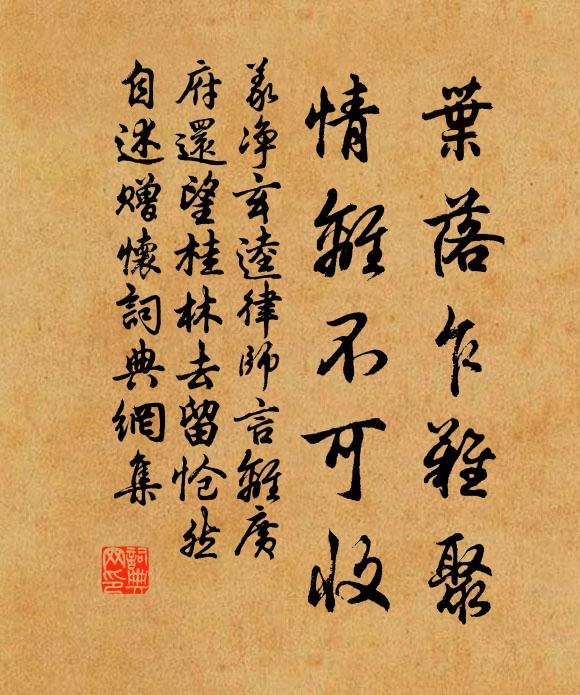 葉落乍難聚
情離不可收
義淨玄逵律師言離廣
府還望桂林去留愴然
自述贈懷詞典網集
詞典網印